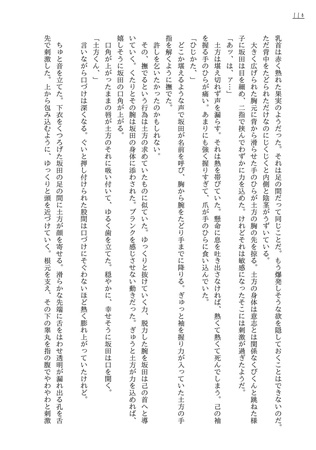 114
乳首は赤く熟れた果実のようだった。それは足の間だって同じことだ。もう爆発しそうな欲を隠しておくことはできないのだ。
ただ背中をたどられただけなのにじくじくと、内側と陰茎がうずいている。
大きく広げられた胸元に背から滑らせた手のひらが土方の胸の先を掠る。土方の身体は意志とは関係なくびくんと跳ねた様
子に坂田は目を細め、二指で挟んでわずかに力を込めた。けれどそれは敏感になったそこには刺激が過ぎたようだ。
「あッ、は、ァ…」
土方は堪え切れず声を漏らす。それは熱を帯びていた。懸命に息を吐き出さなければ、熱くて熱くて死んでしまう。己の袖
を握る手のひらが痛い。あまりにも強く握りすぎて、爪が手のひらに食い込んでいた。
「土方くん、」
どこか堪えるような声で坂田が名前を呼び、胸から腕をたどり手までに降りる。ぎゅっと袖を握り力が入っていた土方の手
指を解くように撫でた。
許しを乞いたかったのかもしれない。
その、撫でるという行為は土方の求めていたものに似ていた。ゆっくりと抜けていく力、脱力した腕を坂田は己の首へと導
いていく。くたりとその腕は坂田の身体に添わされた。ブランクを感じさせない動きだった。ぎゅうと土方が力を込めれば、
嬉しそうに坂田の口角が上がる。
口角が上がったままの唇が土方のそれに吸い付いて、ゆるく歯を立てた。穏やかに、幸せそうに坂田は口を開く。
「土方くん、」
言いながら口づけは深くなる。ぐいと押し付けられた股間は口づけにそぐわないほど熱く膨れ上がっていたけれど。
ちゅと音を立てた。下衣をくつろげた坂田の足の間に土方が顔を寄せる。滑らかな先端に舌をはわせ透明が漏れ出る孔を舌
先で刺激した。上から包み込むように、ゆっくりと頭を近づけていく。根元を支え、その下の睾丸を指の腹でやわやわと刺激